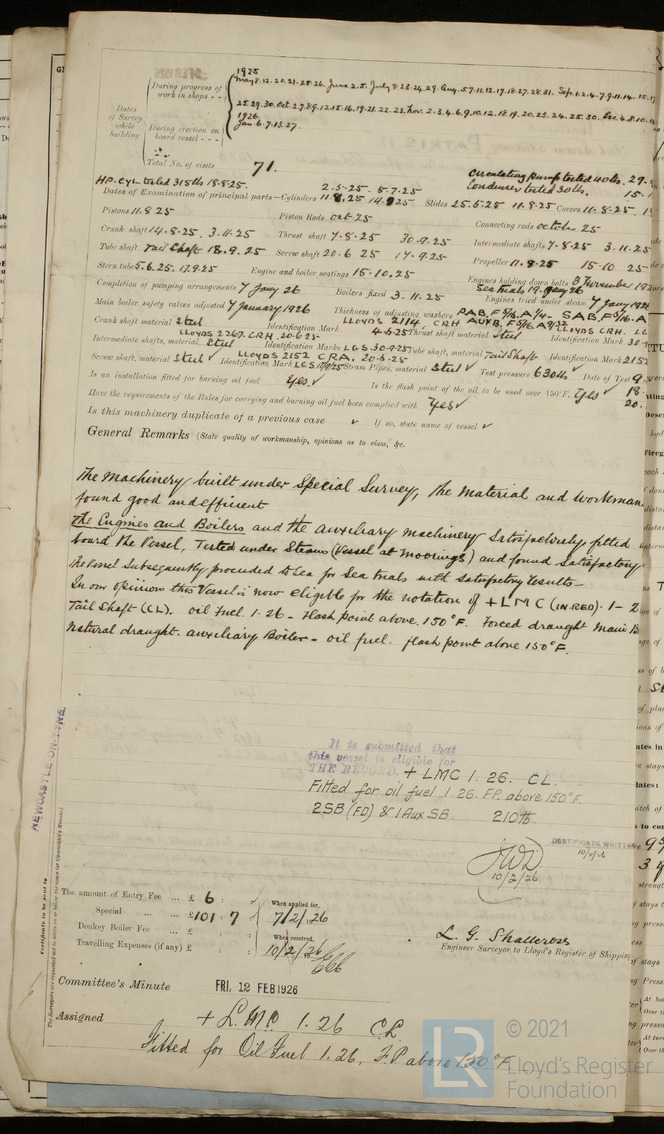 1925
During progress of work in shops - - May 8.12.20.21.25.26. June 2.5. July 8.23.24.29. Aug. 5.7.11.12.17.18.27.28.31. Sep. 1.2.4.7.9.11.14.15.17
25.29.30. Oct. 2.7.8.9.12.15.16.19.21.22.23. Nov. 2.3.4.6.9.10.12.18.19.20.23.24.25.30. Dec. 4.8.10.14
1926.
Dates of Survey while building
During erection on board vessel - - - Jan. 6.7.13.27.
Total No. of visits 71.
HP. cyl. tested 315 lbs 18.8.25. Circulating pump tested 40 lbs. 29.
2.5.25. 5.7.25 Condenser tested 30 lbs. 15.
Dates of Examination of principal parts—Cylinders 11.8.25 14.9.25 Slides 25.5.25 11.8.25 Covers 11.8.25.
Pistons 11.8.25 Piston Rods Oct 25 Connecting rods October 25
Crank shaft 14.8.25. 3.11.25 Thrust shaft 7.8.25 30.9.25 Intermediate shafts 7.8.25 3.11.25
Tube shaft Tail Shaft 18.9.25 Screw shaft 20.6.25 17.9.25 Propeller 11.8.25 15.10.25
Stern tube 5.6.25. 17.9.25 Engine and boiler seatings 15.10.25 Engines holding down bolts 3 November 192
Sea trials 19. Jany 26
Completion of pumping arrangements 7 Jany 26 Boilers fixed 3.11.25 Engines tried under steam 7 Jany 192
Main boiler safety valves adjusted 7 January 1926 Thickness of adjusting washers PAB, F 5/16. A 1/4 - SAB, F 5/16. A
Crank shaft material Steel Identification Mark LLOYDS 2114, CRH AUXB, F 5/16. A 9/32 LLOYDS CRH. LG
LLOYDS 2267. CRH. 20.6.25 4.6.25 Thrust shaft material Steel Identification Mark 30.9
Intermediate shafts, material Steel Identification Marks LGS 30.9.25 Tube shaft, material Tail Shaft Identification Mark 2152
LLOYDS 2152 CRA. 20.6.25
Screw shaft, material Steel ✓ Identification Mark LGS 17/9/25 Steam Pipes, material Steel ✓ Test pressure 630 lbs ✓ Date of Test 9.
Is an installation fitted for burning oil fuel Yes. ✓ Is the flash point of the oil to be used over 150°F. Yes ✓ 18.
Have the requirements of the Rules for carrying and burning oil fuel been complied with Yes ✓ 20.
Is this machinery duplicate of a previous case ✓ If so, state name of vessel ✓
General Remarks (State quality of workmanship, opinions as to class, &c.
The Machinery built under Special Survey, the Material and Workman
found good and efficient
The Engines and Boilers and the auxiliary machinery Satisfactorily fitted
board the Vessel, Tested under Steam (Vessel at moorings) and found satisfactory
The Vessel Subsequently proceeded to Sea for Sea trials with satisfactory results—
In our opinion this Vessel is now eligible for the notation of + LMC (IN RED). 1 - 2
Tail Shaft (CL). oil fuel. 1.26 - Flash point above 150°F. Forced draught Main B
Natural draught. auxiliary Boiler - oil fuel. flash point above 150°F.
NEWCASTLE-ON-TYNE.
Certificate to be sent to
It is submitted that
this vessel is eligible for
THE RECORD. + LMC 1.26. CL.
Fitted for oil fuel 1.26. F.P. above 150°F.
2SB (FD) & 1 Aux SB. 210 lb.
JWD
10/2/26
CERTIFICATE WRITTEN
10/2/26
The amount of Entry Fee ... £ 6 : : When applied for,
Special ... ... £ 101 : 7 7/2/26
Donkey Boiler Fee ... £ : : When received,
Travelling Expenses (if any) £ : : 10/2/26
L. G. Shallcross
Engineer Surveyor to Lloyd's Register of Shipping
Committee's Minute FRI. 12 FEB 1926
Assigned + L.M.C. 1.26 C.L.
Fitted for Oil Fuel 1.26. F.P. above 150°F.
LR © 2021
Lloyd's Register
Foundation